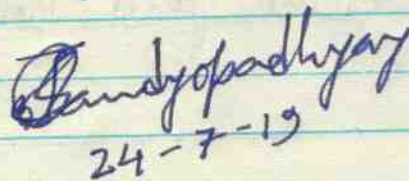 Bandyopadhyay
24-7-19